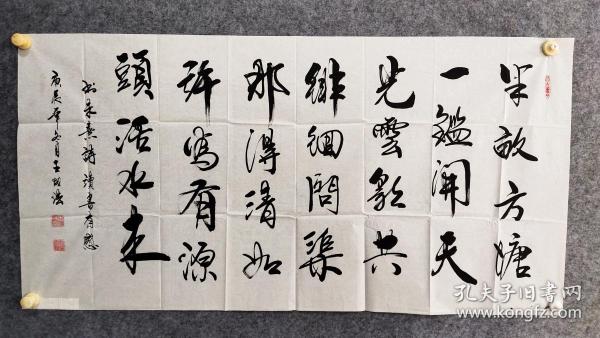 半畝方塘
一鑑開天
光雲影共
徘徊問渠
那得清如
許為有源
頭活水来
书朱熹詩讀書有感
庚辰年 月王
孔夫子旧书网
www.kongfz.com